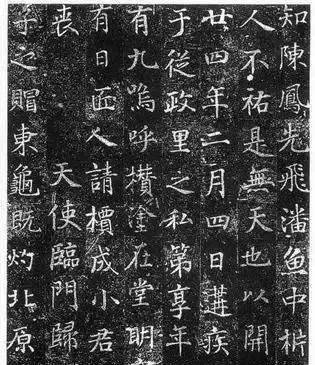 知陳鳳先飛潘魚中枿
人不祐是無天也以開
廿四年二月四日遘疾
于從政里之私第享年
有九嗚呼攢塗在堂明
有日匠人請櫝成小君
喪 天使臨門歸
子之賵東龜既灼北原